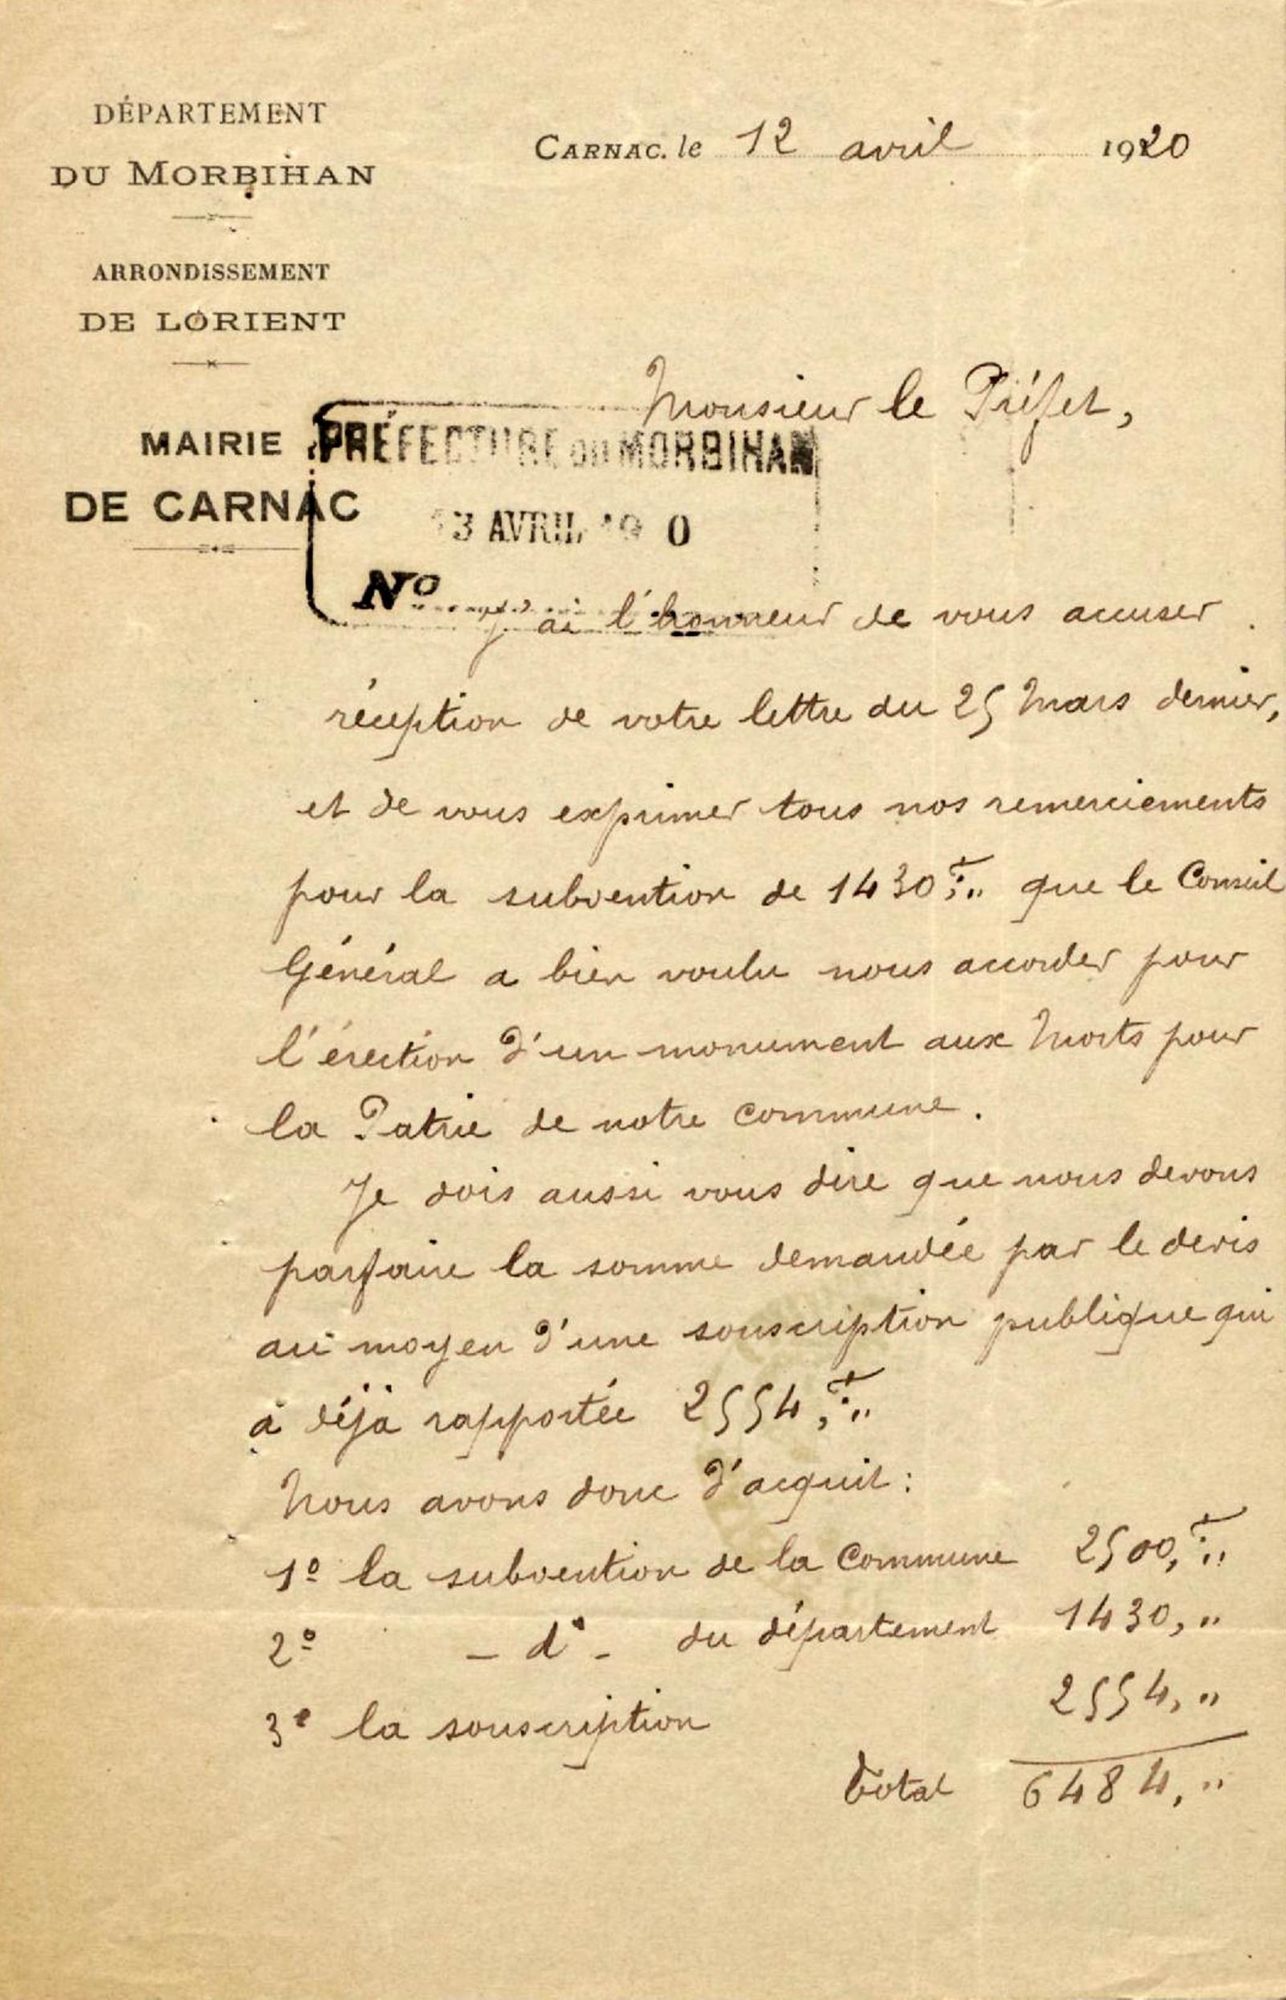 DÉPARTEMENT
DU MORBIHAN
ARRONDISSEMENT
DE LORIENT
MAIRIE
DE CARNAC
CARNAC, le 12 avril 1920
Monsieur le Préfet,
PRÉFECTURE DU MORBIHAN
13 AVRIL 19 0
No
J'ai l'honneur de vous accuser
réception de votre lettre du 25 Mars dernier,
et de vous exprimer tous nos remerciements
pour la subvention de 1430,F" que le Conseil
Général a bien voulu nous accorder pour
l'érection d'un monument aux Morts pour
la Patrie de notre commune.
Je dois aussi vous dire que nous devons
parfaire la somme demandée par le devis
au moyen d'une souscription publique qui
a déjà rapportée 2554,F"
Nous avons donc d'acquit :
1º la subvention de la Commune 2500,F"
2º - dº - du département 1430,"
3º la souscription 2554,"
Total 6484,"